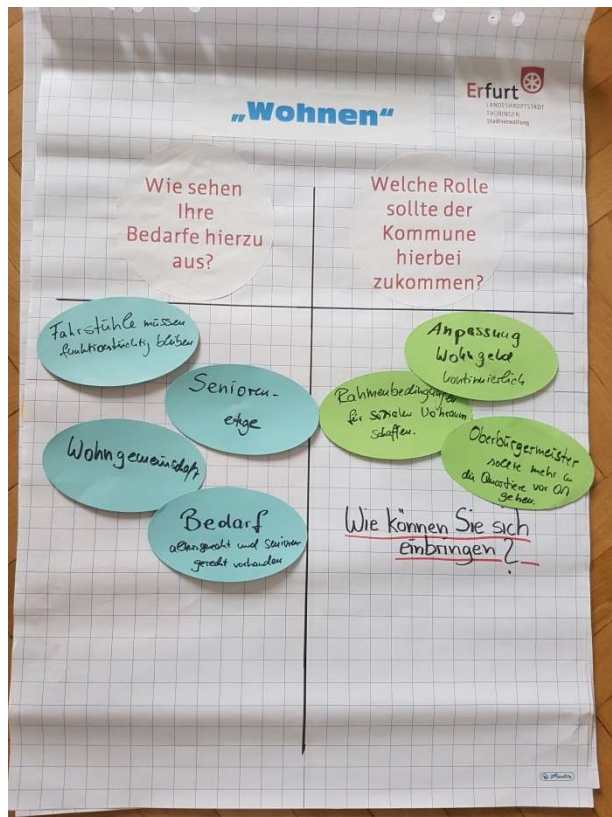 „Wohnen“
Erfurt
LANDESHAUPTSTADT
THÜRINGEN
Stadtverwaltung
Wie sehen
Ihre
Bedarfe hierzu
aus?
Welche Rolle
sollte der
Kommune
hierbei
zukommen?
Fahrstühle müssen
funktionstüchtig bleiben
Senioren-
etage
Wohngemeinschaft
Bedarf
altersgerecht und senioren
gerecht vorhanden
Anpassung
Wohngeld
kontinuierlich
Rahmenbedingungen
für sozialen Wohnraum
schaffen.
Oberbürgermeister
sollte mehr in
die Quartiere vor Ort
gehen.
Wie können Sie sich
einbringen?